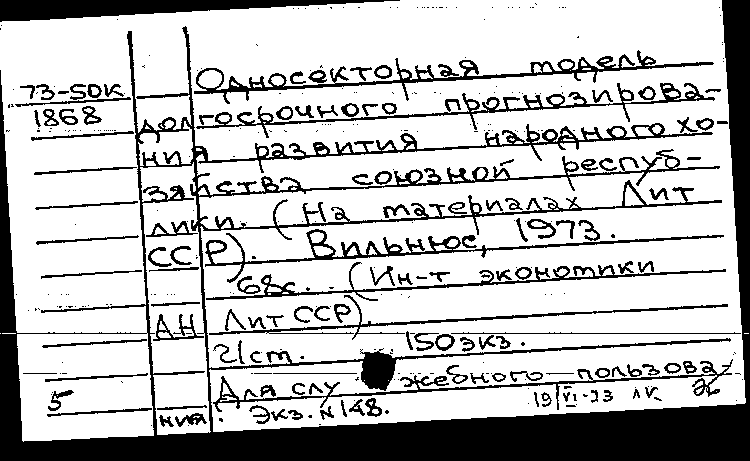 73-50К Односекторная модель
1868 долгосрочного прогнозирова-
ния развития народного хо-
зяйства союзной респуб-
лики. (На материалах Лит
ССР). Вильнюс, 1973.
68с. (Ин-т экономики
АН Лит ССР).
150 экз.
5 Для служебного пользова-
ния. Экз. №148. 19/VI-73